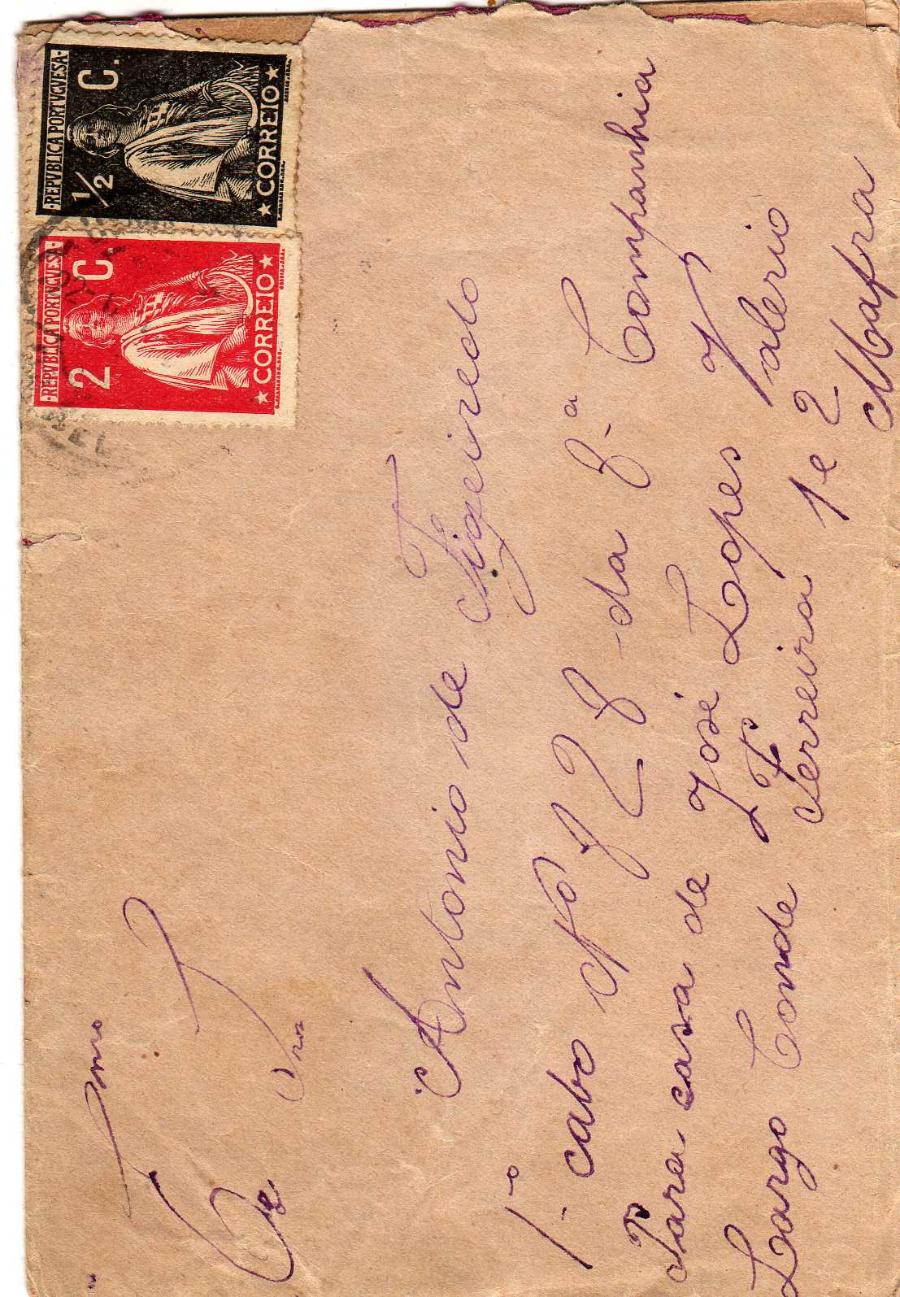 REPVBLICA PORTVGVESA
2 C.
CORREIO
REPVBLICA PORTVGVESA
1/2 C.
CORREIO
Exmo
Antonio de Figueiredo
1º cabo Nº 828 da 8ª Companhia
Para casa de José Lopes Valerio
Largo Conde Ferreira 1 e 2
Mafra